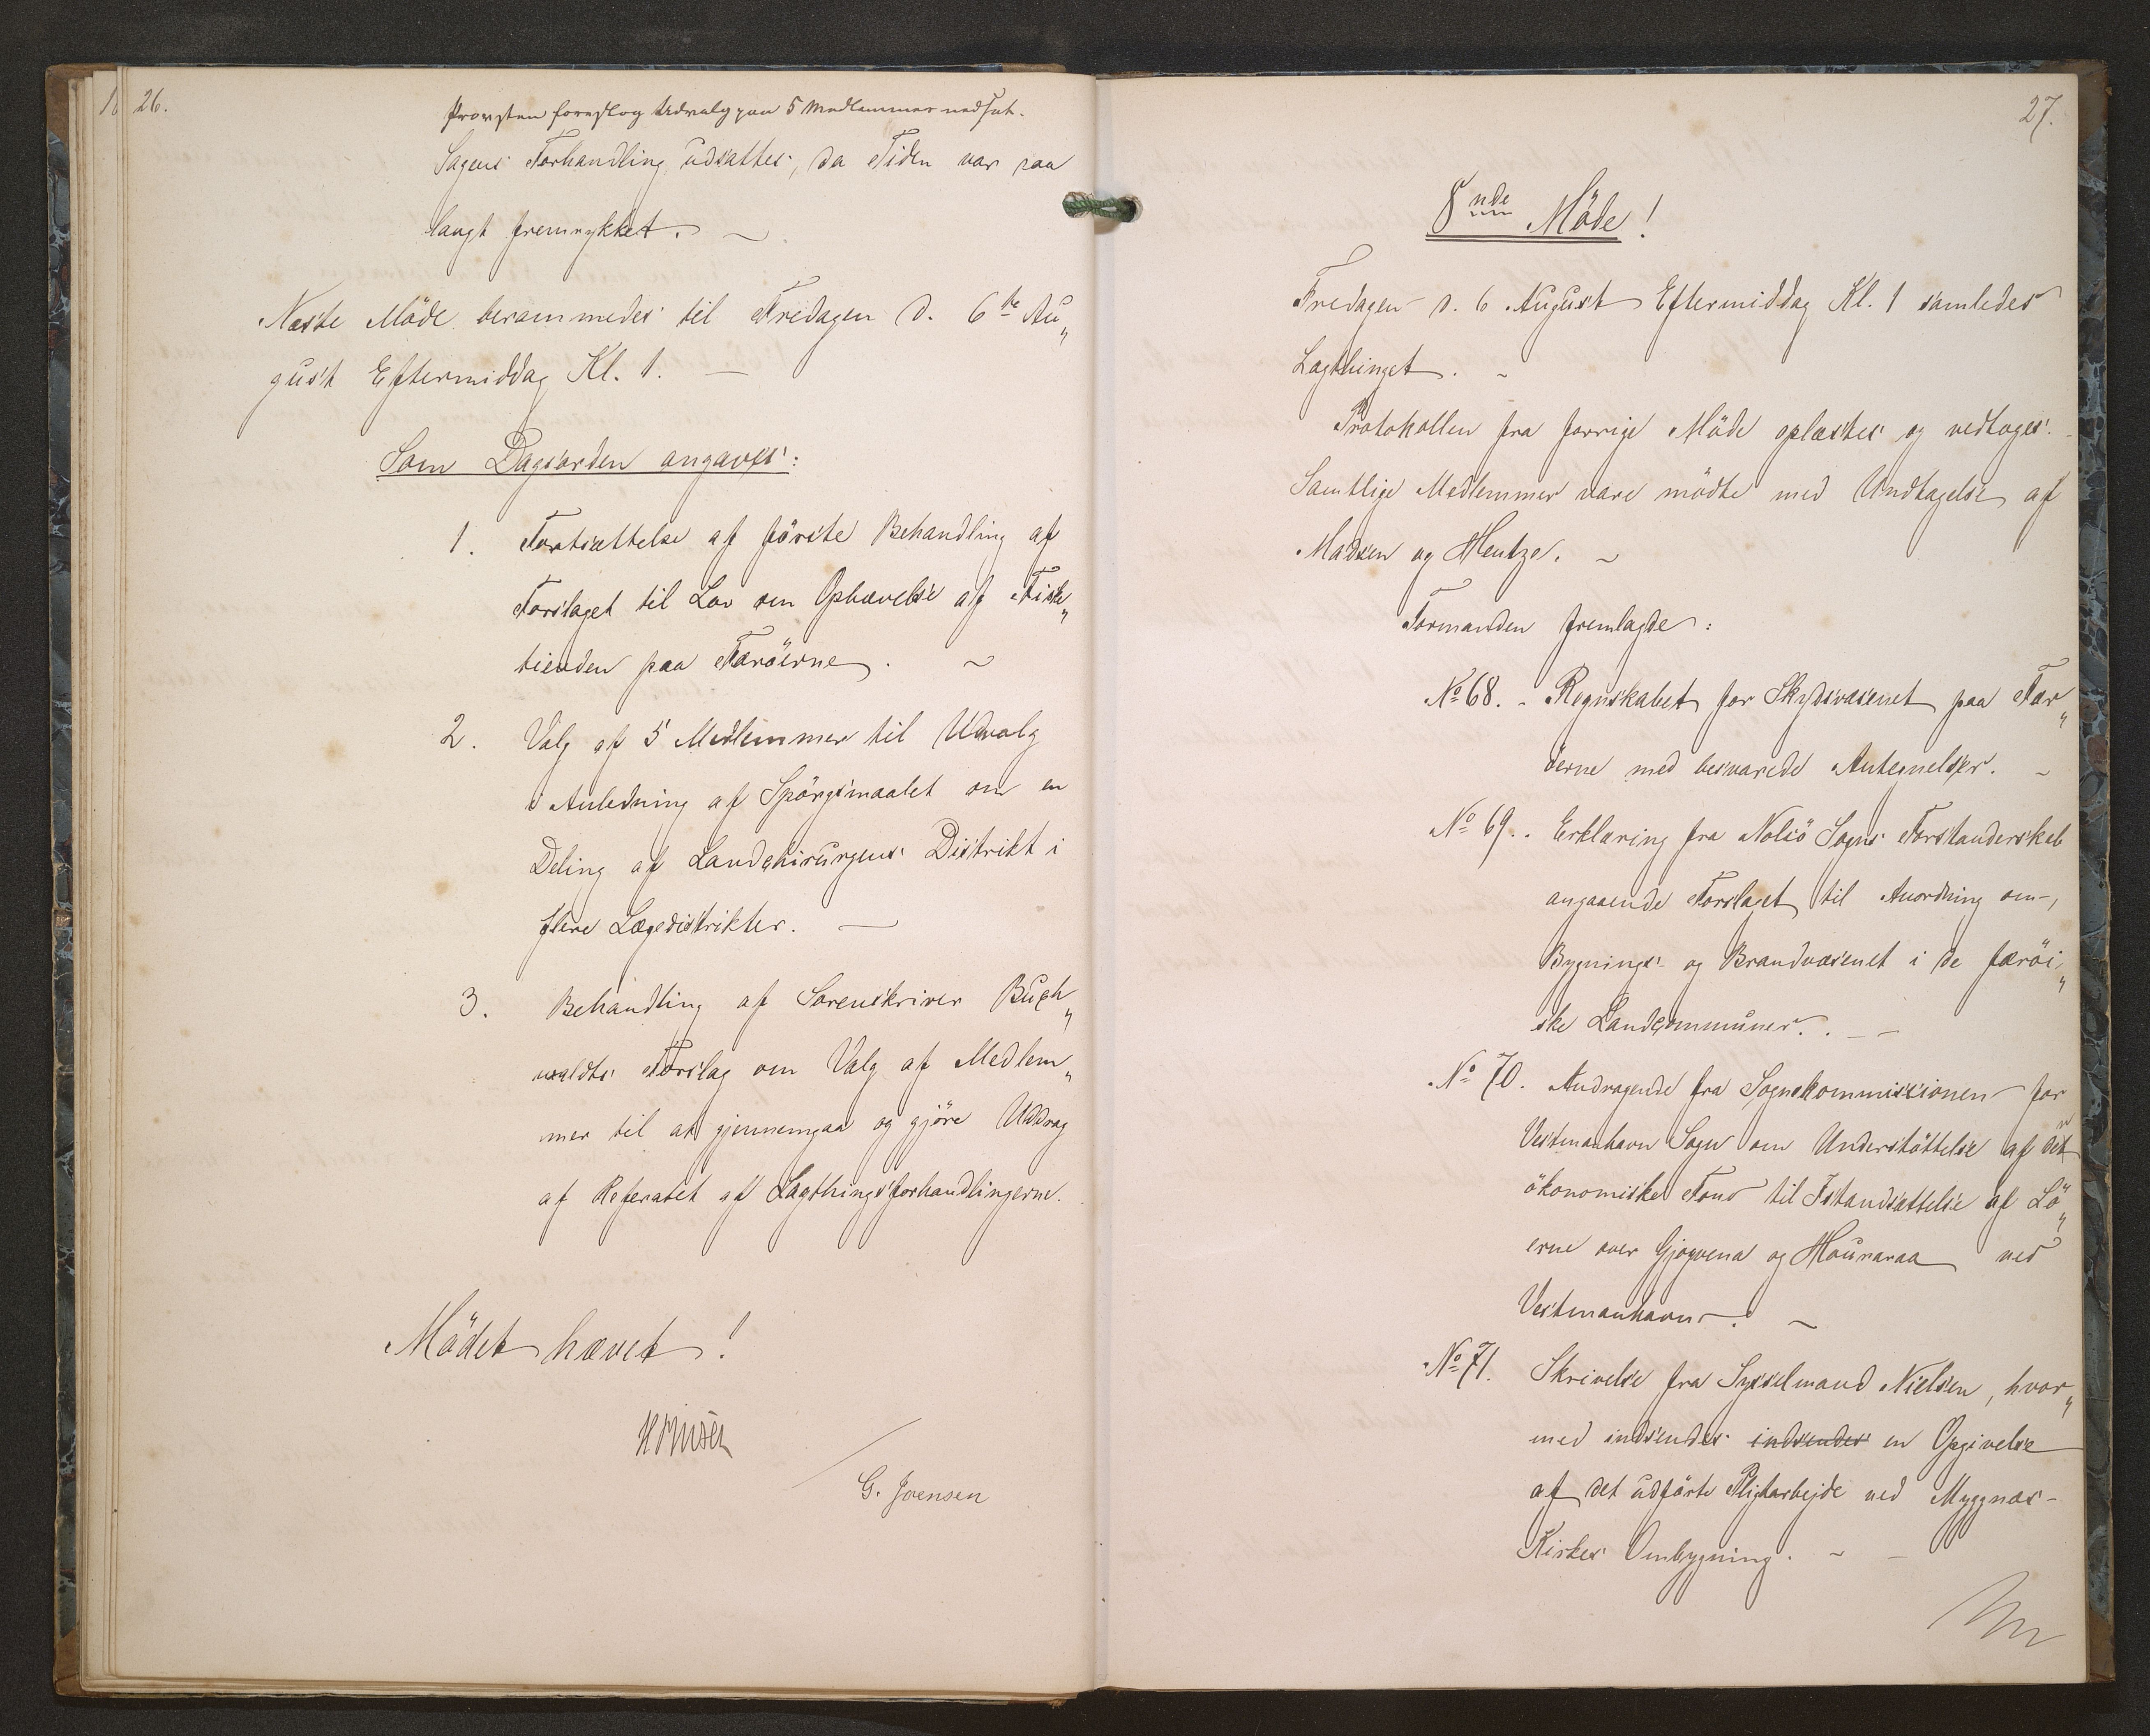 26.
Provsten foreslog Udvalg paa 5 Medlemmer nedsat.
Sagens Forhandling udsattes, da Tiden var saa
langt fremrykket. ~
Næste Möde berammedes til Fredagen d. 6te Au„
gust Eftermiddag Kl. 1. —
Som Dagsorden angaves:
1. Fortsættelse af förste Behandling af
Forslaget til Lov om Ophævelse af Fiske„
tienden paa Færöerne. ~
2. Valg af 5 Medlemmer til Udvalg
i Anledning af Spörgsmaalet om en
Deling af Landchirurgens Distrikt i
flere Lægedistrikter. —
3. Behandling af Sorenskriver Buch„
waldts Forslag om Valg af Medlem„
mer til at gjennemgaa og gjöre Uddrag
af Referatet af Lagthingsforhandlingerne.
Mödet hævet!
G. Joensen
27.
8nde Möde!
Fredagen d. 6 August Eftermiddag Kl. 1 samledes
Lagthinget. ~
Protokollen fra forrige Möde oplæstes og vedtoges.
Samtlige Medlemmer vare mödte med Undtagelse af
Madsen og Hentze. ~
Formanden fremlagde:
No 68. - Regnskabet for Skydsvæsenet paa Fær„
öerne med besvarede Antegnelser. ~
No 69. . Erklæring fra Nolsö Sogns Forstanderskab
angaaende Forslaget til Anordning om
Bygnings- og Brandvæsenet i de færöi„
ske Landcommuner. . — —
No 70. Andragende fra Sognekommissionen for
Vestmanhavn Sogn om Understöttelse af det
ökonomiske Fond til Istandsættelse af Lö„
erne over Gjogvena og Hounaraa ved
Vestmanhavn. ~
No 71. Skrivelse fra Sysselmand Nielsen, hvor„
med indsendes indsendes en Opgivelse
af det udförte Pligtarbejde ved Myggnæs-
Kirkes Ombygning. ~ —